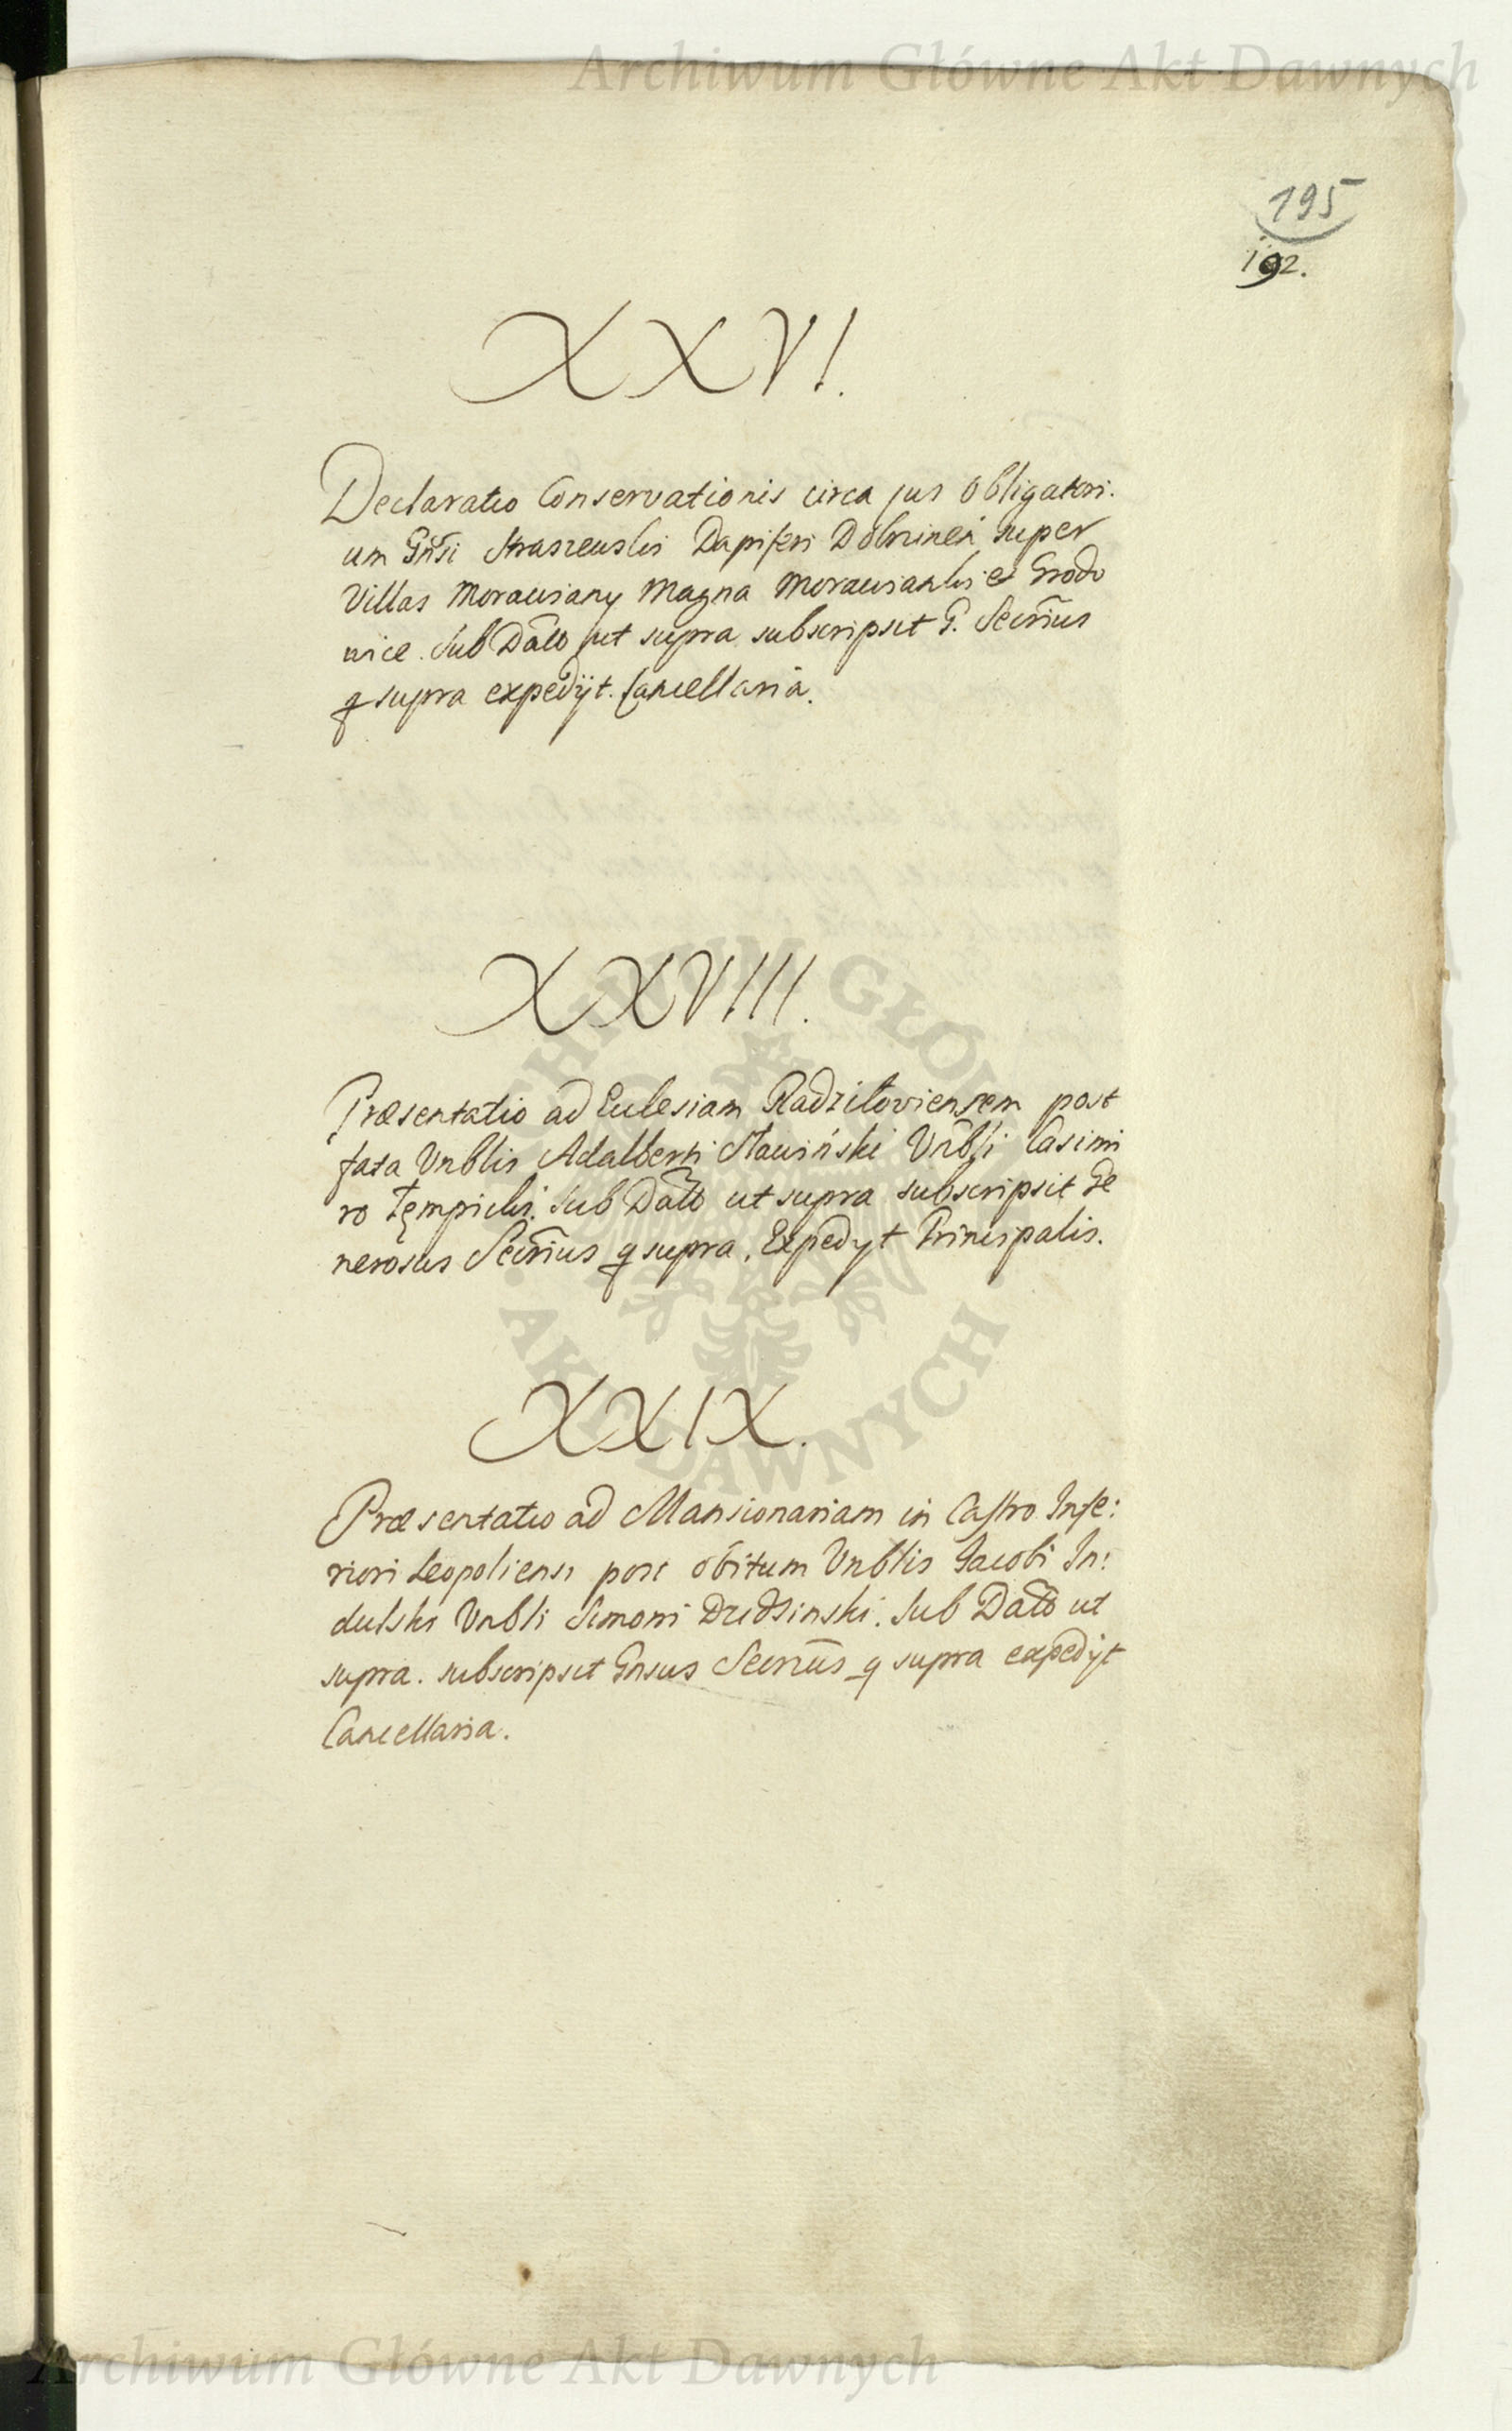 Archiwum Główne Akt Dawnych
195
192.
XXVI.
Declaratio Conservationis circa jus obligatori:
um Gñsi Straszewski Dapiferi Dobrinen super
Villas Morawiany Magna Morawianki et Grodo
wice. Sub Dãto ut supra subscripsit G. Secrius
q supra expedijt. Cancellaria.
XXVIII.
Præsentatio ad Ecclesiam Radziloviensem post
fata Vnblis Adalberti Sławiński Vnbli Casimi
ro Tempicki. Sub Dato ut supra subscripsit Ge
nerosus Secrius q supra. Expedyt Principalis.
XXIX.
Præsentatio ad Mansionariam in Castro Infe:
riori Leopoliensi post obitum Vnblis Jacobi In:
dulski Vnbli Simoni Dudsinski. Sub Dato ut
supra. subscripsit Gnsus Secrius q supra expedijt
Cancellaria.
ARCHIWUM GŁÓWNE
AKT DAWNYCH
Archiwum Główne Akt Dawnych